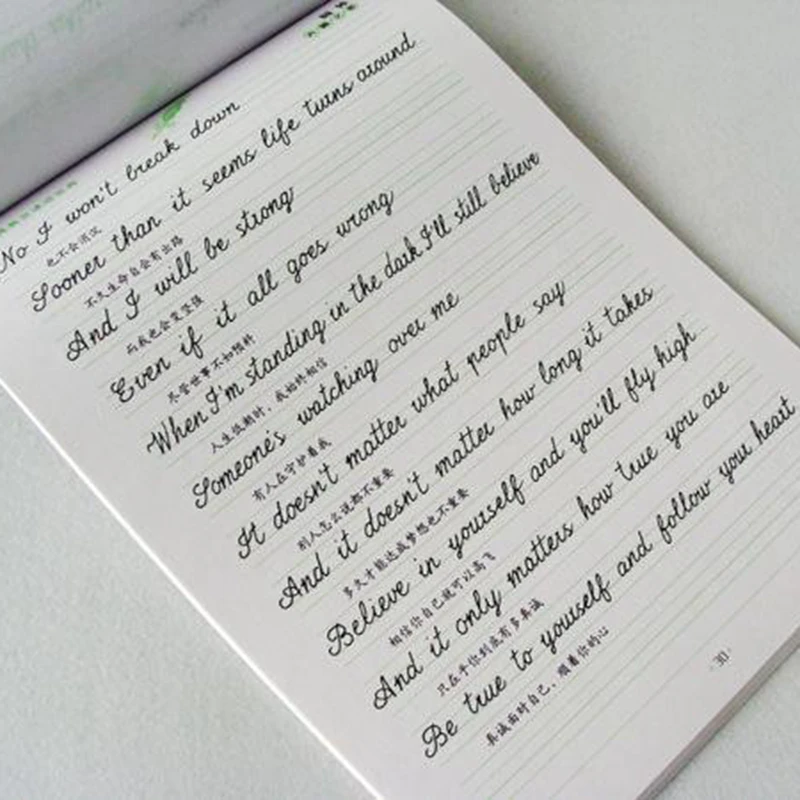 No I won't break down
也不会消沉
Sooner than it seems life turns around
不久生命自会有出路
And I will be strong
而我也会变坚强
Even if it all goes wrong
尽管世事不如预料
When I'm standing in the dark I'll still believe
人生低潮时，我始终相信
Someone's watching over me
有人在守护着我
It doesn't matter what people say
别人怎么说都不重要
And it doesn't matter how long it takes
多久才能达成梦想也不重要
Believe in yourself and you'll fly high
相信你自己就可以高飞
And it only matters how true you are
只在乎你到底有多真诚
Be true to yourself and follow your heart
真诚面对自己，顺着你的心
·30·